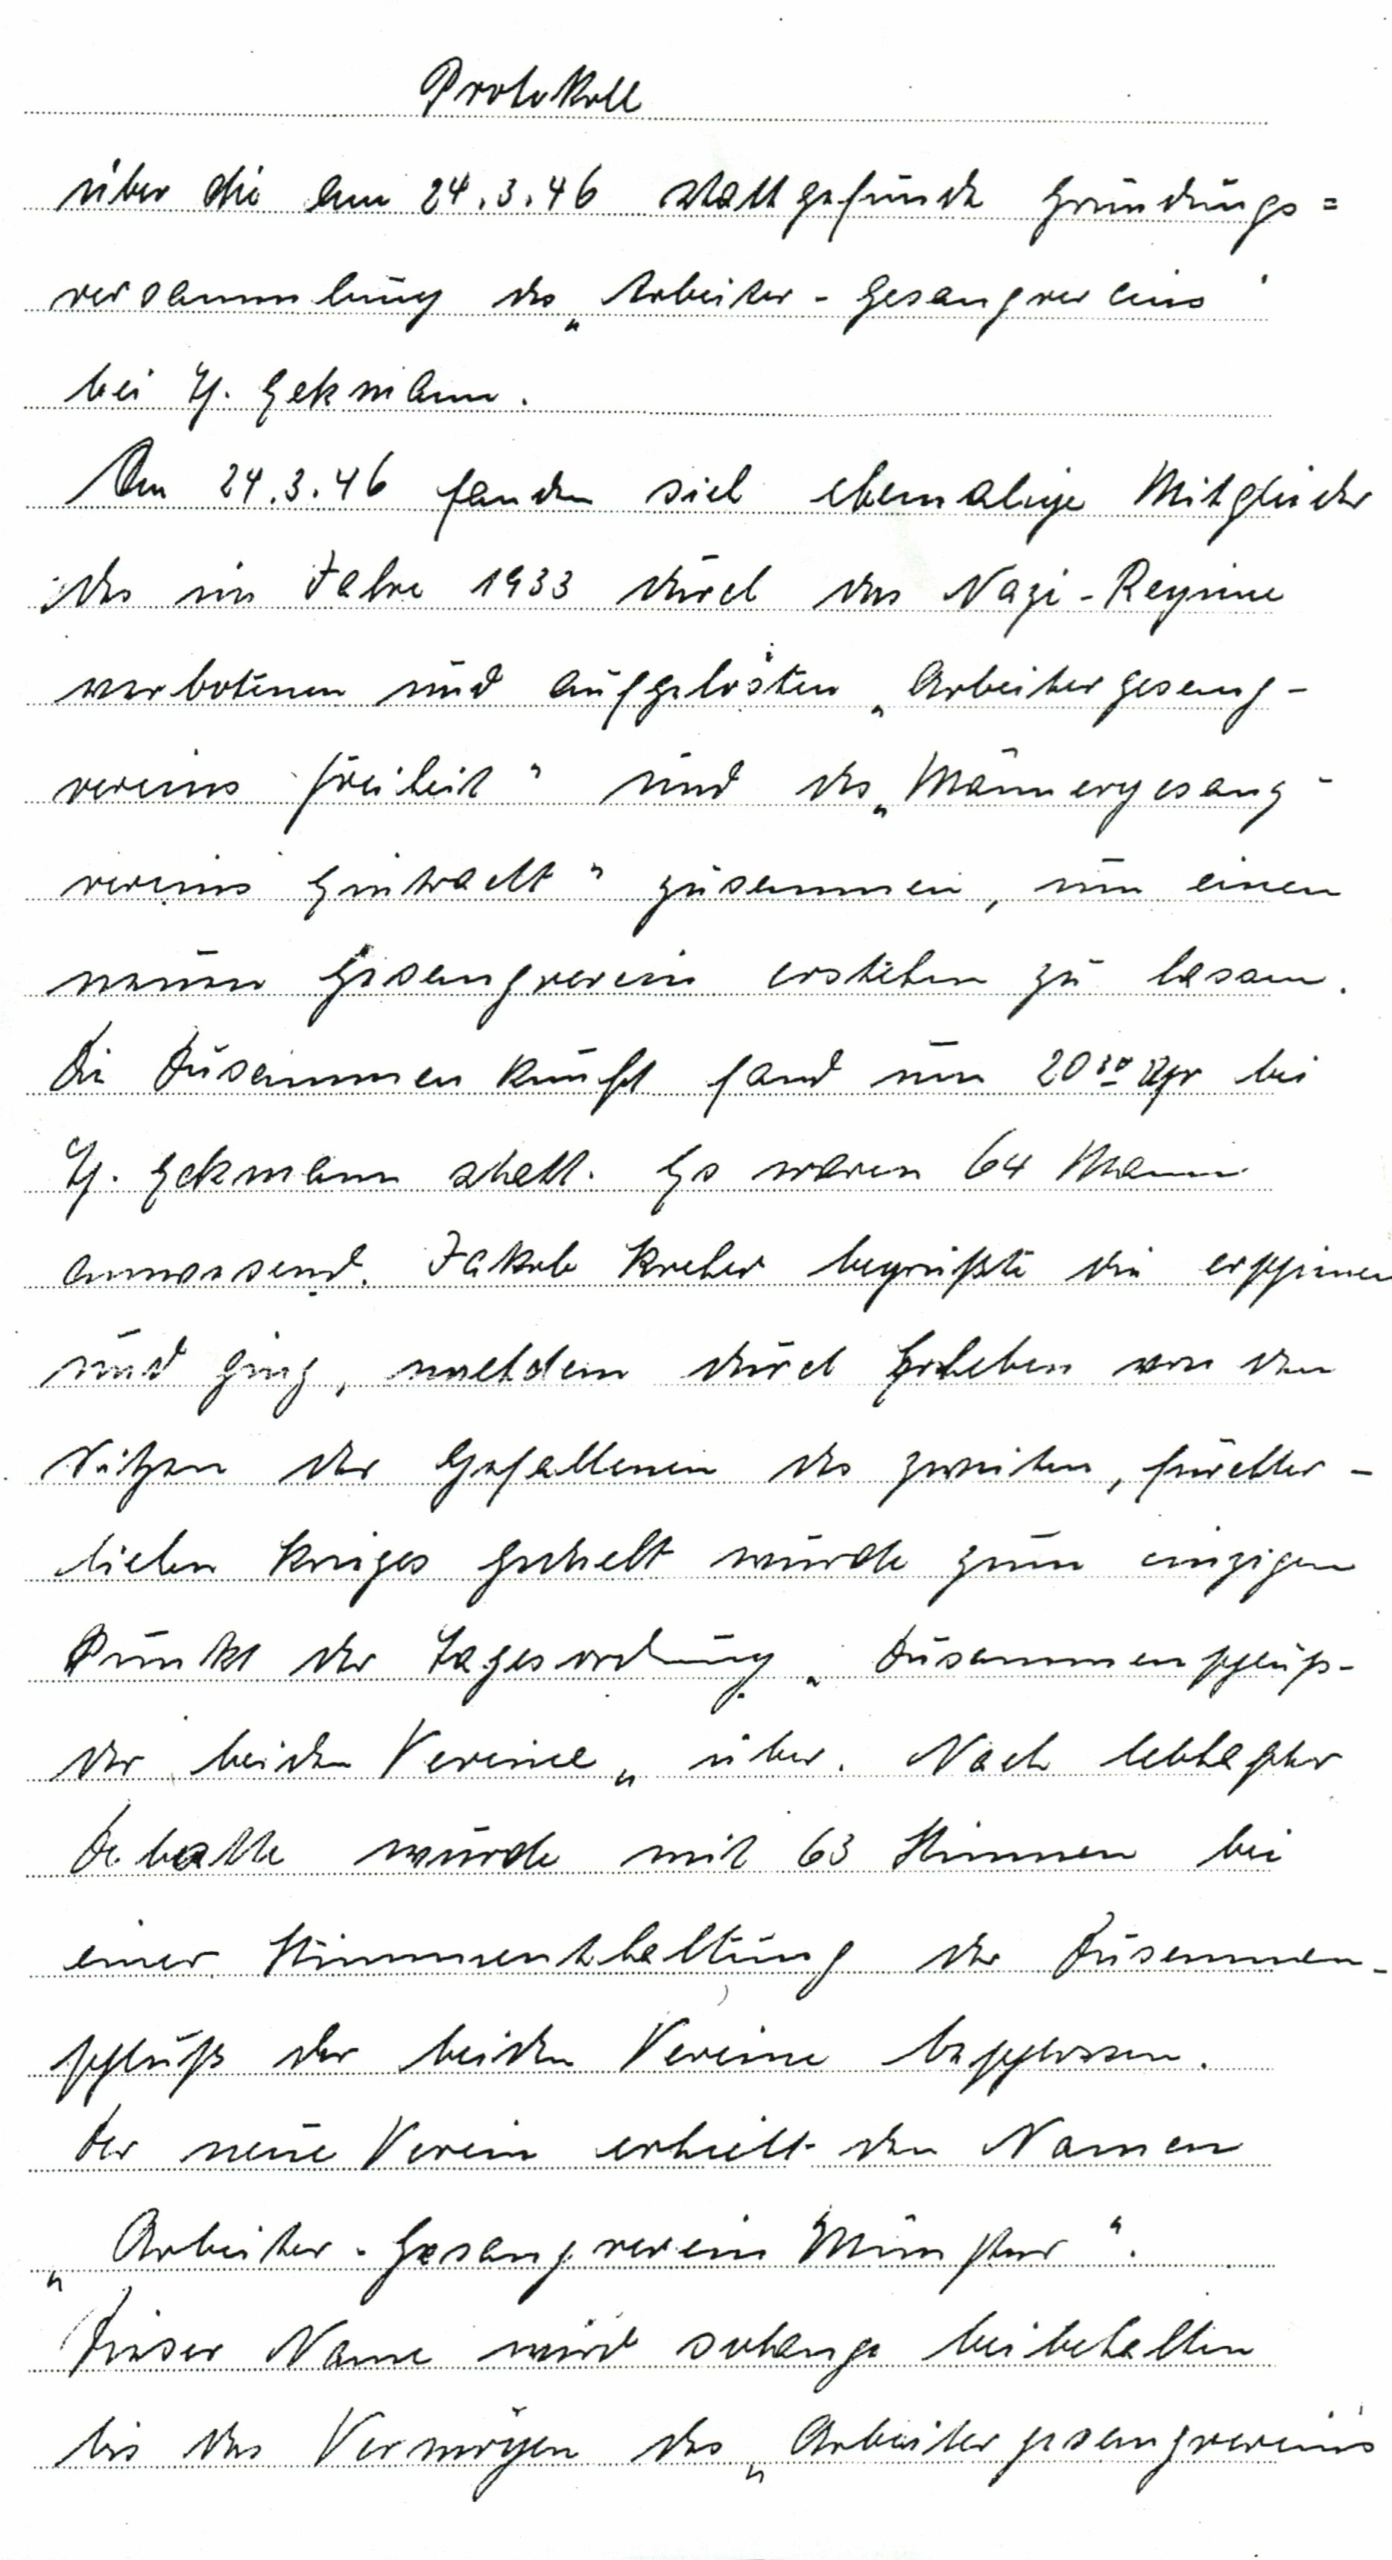 Protokoll
über die am 24.3.46 stattgefunde Gründungs=
versammlung des „Arbeiter-Gesangvereins"
bei H. Eckmann.
Am 24.3.46 fanden sich ehemalige Mitglieder
des im Jahre 1933 durch das Nazi-Regime
verbotenen und aufgelösten „Arbeitergesang-
vereins Freiheit" und des „Männergesang-
vereins Eintracht" zusammen, um einen
neuen Gesangverein erstehen zu lassen.
Die Zusammenkunft fand um 20³⁰ Uhr bei
H. Eckmann statt. Es waren 64 Mann
anwesend. Jakob Kreher begrüßte die erschienen
und ging, nachdem durch Erheben von den
Sitzen der Gefallenen des zweiten, fürchter-
lichen Krieges gedacht wurde zum einzigen
Punkt der Tagesordnung „Zusammenschluß-
der beiden Vereine„ über. Nach lebhafter
Debatte wurde mit 63 Stimmen bei
einer Stimmenthaltung der Zusammen-
schluß der beiden Vereine beschlossen.
Der neue Verein erhielt den Namen
„Arbeiter-Gesangverein Münster".
Dieser Name wird solange beibehalten
bis das Vermögen des „Arbeitergesangvereins